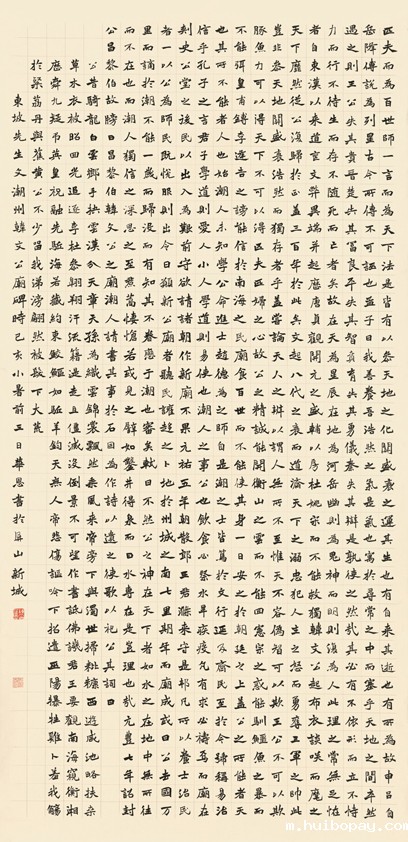 匹夫而為百世師一言而為天下法是皆有以參天地之化關盛衰之運其生也有自來其逝也有所為故申呂自
岳降傅說為列星古今所傳不可誣也孟子曰我善養吾浩然之氣是氣也寓於尋常之中而塞乎天地之間卒然
遇之則王公失其貴晉楚失其富良平失其智賁育失其勇儀秦失其辯是孰使之然哉其必有不依形而立不恃
力而行不待生而存不隨死而亡者矣故在天為星辰在地為河嶽幽則為鬼神而明則復為人此理之常無足怪
者自東漢以來道喪文弊異端並起歷唐貞觀開元之盛輔以房杜姚宋而不能救獨韓文公起布衣談笑而麾之
天下靡然從公復歸於正蓋三百年於此矣文起八代之衰而道濟天下之溺忠犯人主之怒而勇奪三軍之帥此
豈非參天地關盛衰浩然而獨存者乎蓋嘗論天人之辨以謂人無所不至惟天不容偽智可以欺王公不可以欺
豚魚力可以得天下不可以得匹夫匹婦之心故公之精誠能開衡山之雲而不能回憲宗之惑能馴鱷魚之暴而
不能弭皇甫鎛李逢吉之謗能信於南海之民廟食百世而不能使其身一日安之於朝廷之上蓋公之所能者天
也其所不能者人也始潮人未知學公命進士趙德為之師自是潮之士皆篤於文行延及齊民至於今號稱易治
信乎孔子之言君子學道則愛人小人學道則易使也潮人之事公也飲食必祭水旱疾疫凡有求必禱焉而廟在
刺史公堂之後民以出入為艱前守欲請諸朝作新廟不果元祐五年朝散郎王君滌來守是邦凡所以養士治民
者一以公為師民既悅服則出令曰願新公廟者聽民讙趨之卜地於州城之南七里期年而廟成或曰公去國萬
里而謫於潮不能一歲而歸沒而有知其不眷戀于潮也審矣軾曰不然公之神在天下者如水之在地中無所往
而不在也而潮人獨信之深思之至焄蒿悽愴若或見之譬如鑿井得泉而曰水專在是豈理也哉元豐七年詔封
公昌黎伯故榜曰昌黎伯韓文公之廟潮人請書其事於石因為作詩以遺之使歌以祀公其詞曰
公昔騎龍白雲鄉手抉雲漢分天章天孫為織雲錦裳飄然乘風來帝旁下與濁世掃秕糠西遊咸池略扶桑
草木衣被昭回光追逐李杜參翱翔汗流籍湜走且僵滅沒倒景不可望作書詆佛譏君王要觀南海窺衡湘
歷舜九嶷弔英皇祝融先驅海若藏約束鮫鱷如驅羊鈞天無人帝悲傷謳吟下招遣巫陽犦牲雞卜羞我觴
於粲荔丹與蕉黃公不少留我涕滂翩然被髮下大荒
東坡先生文潮州韓文公廟碑時己亥小暑前三日華恩書於屏山新城
m.huibopay.com